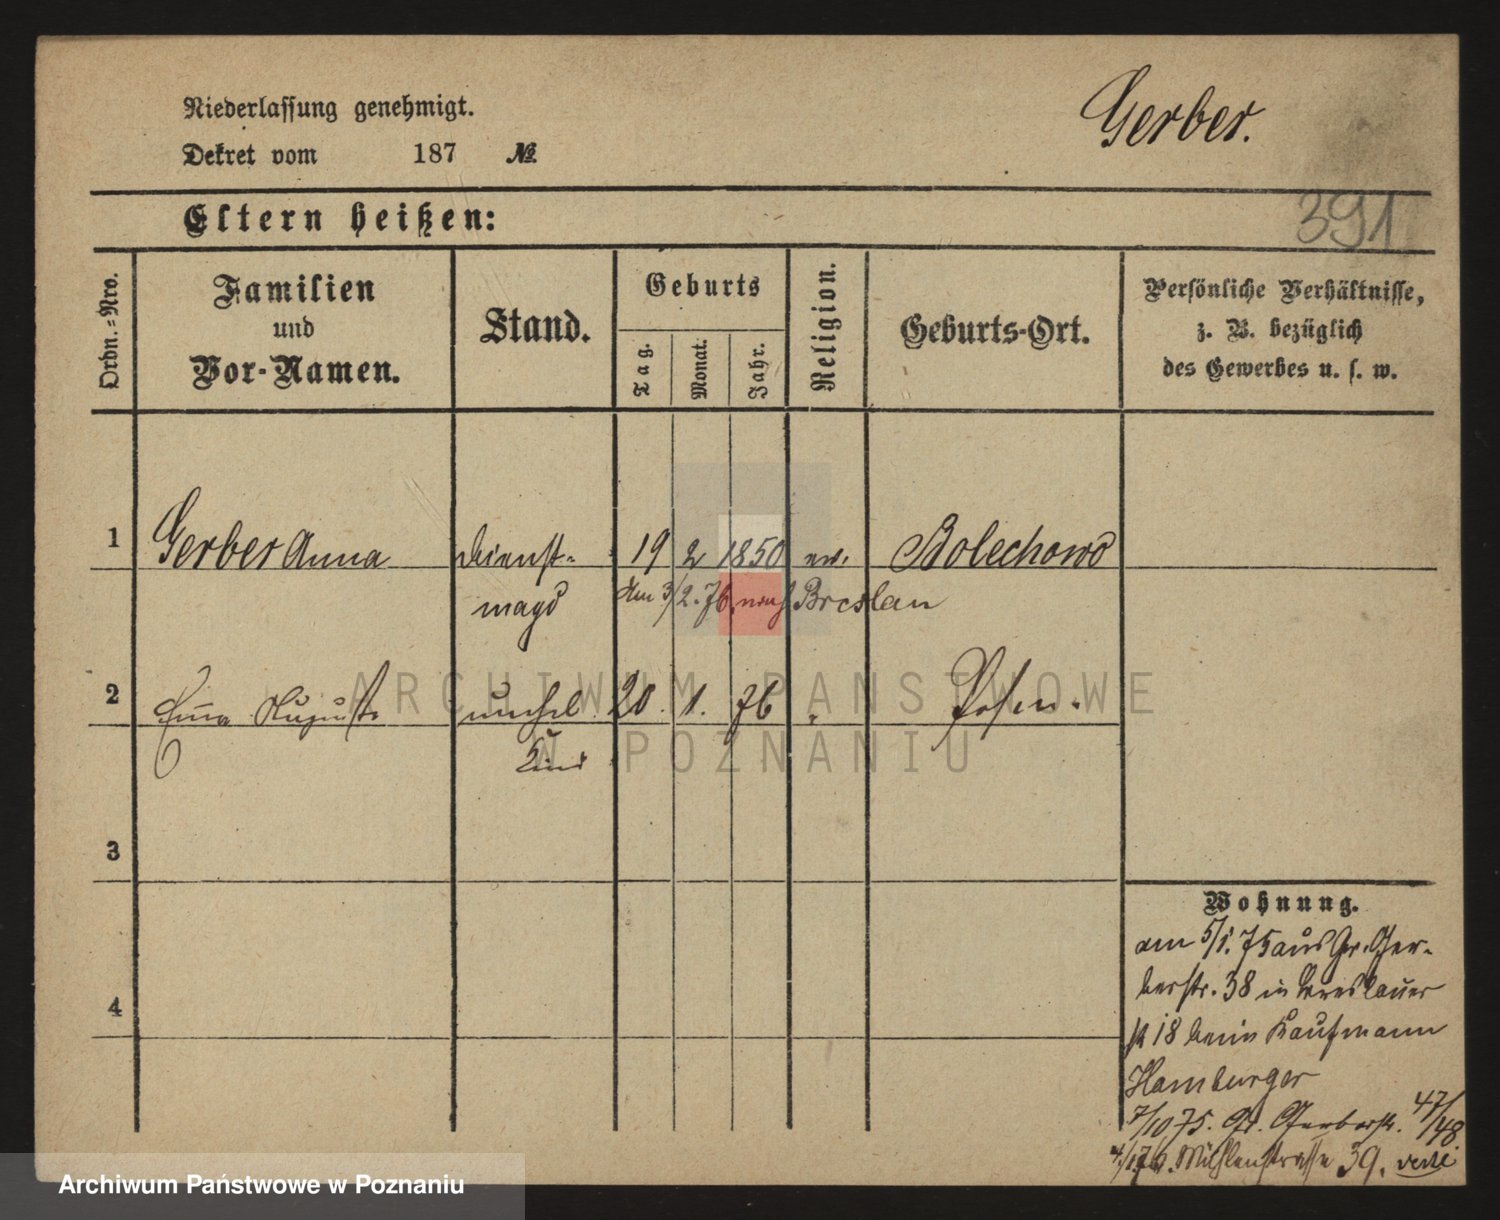 Niederlassung genehmigt.
Dekret vom 187 №
Gerber.
391
Eltern heißen:
Ordn.=Nro.
Familien
und
Vor-Namen.
Stand.
Geburts
Tag.
Monat.
Jahr.
Religion.
Geburts-Ort.
Persönliche Verhältnisse,
z. B. bezüglich
des Gewerbes u. s. w.
1 Gerber Anna Dienst- 19 2 1850 ev. Bolechowo
magd
am 3/2. 76. nach Breslau
2 August 20. 1. 76 Posen.
Kind
3
4
Wohnung.
am 5/1. 75 aus Gr. Ger-
berstr. 38 in Breslauer
18 beim Kaufmann
Hamburger
7/10 75. Gr. Gerberstr. 47/48.
Mühlenstrasse 39.
ARCHIWUM PAŃSTWOWE
W POZNANIU
Archiwum Państwowe w Poznaniu